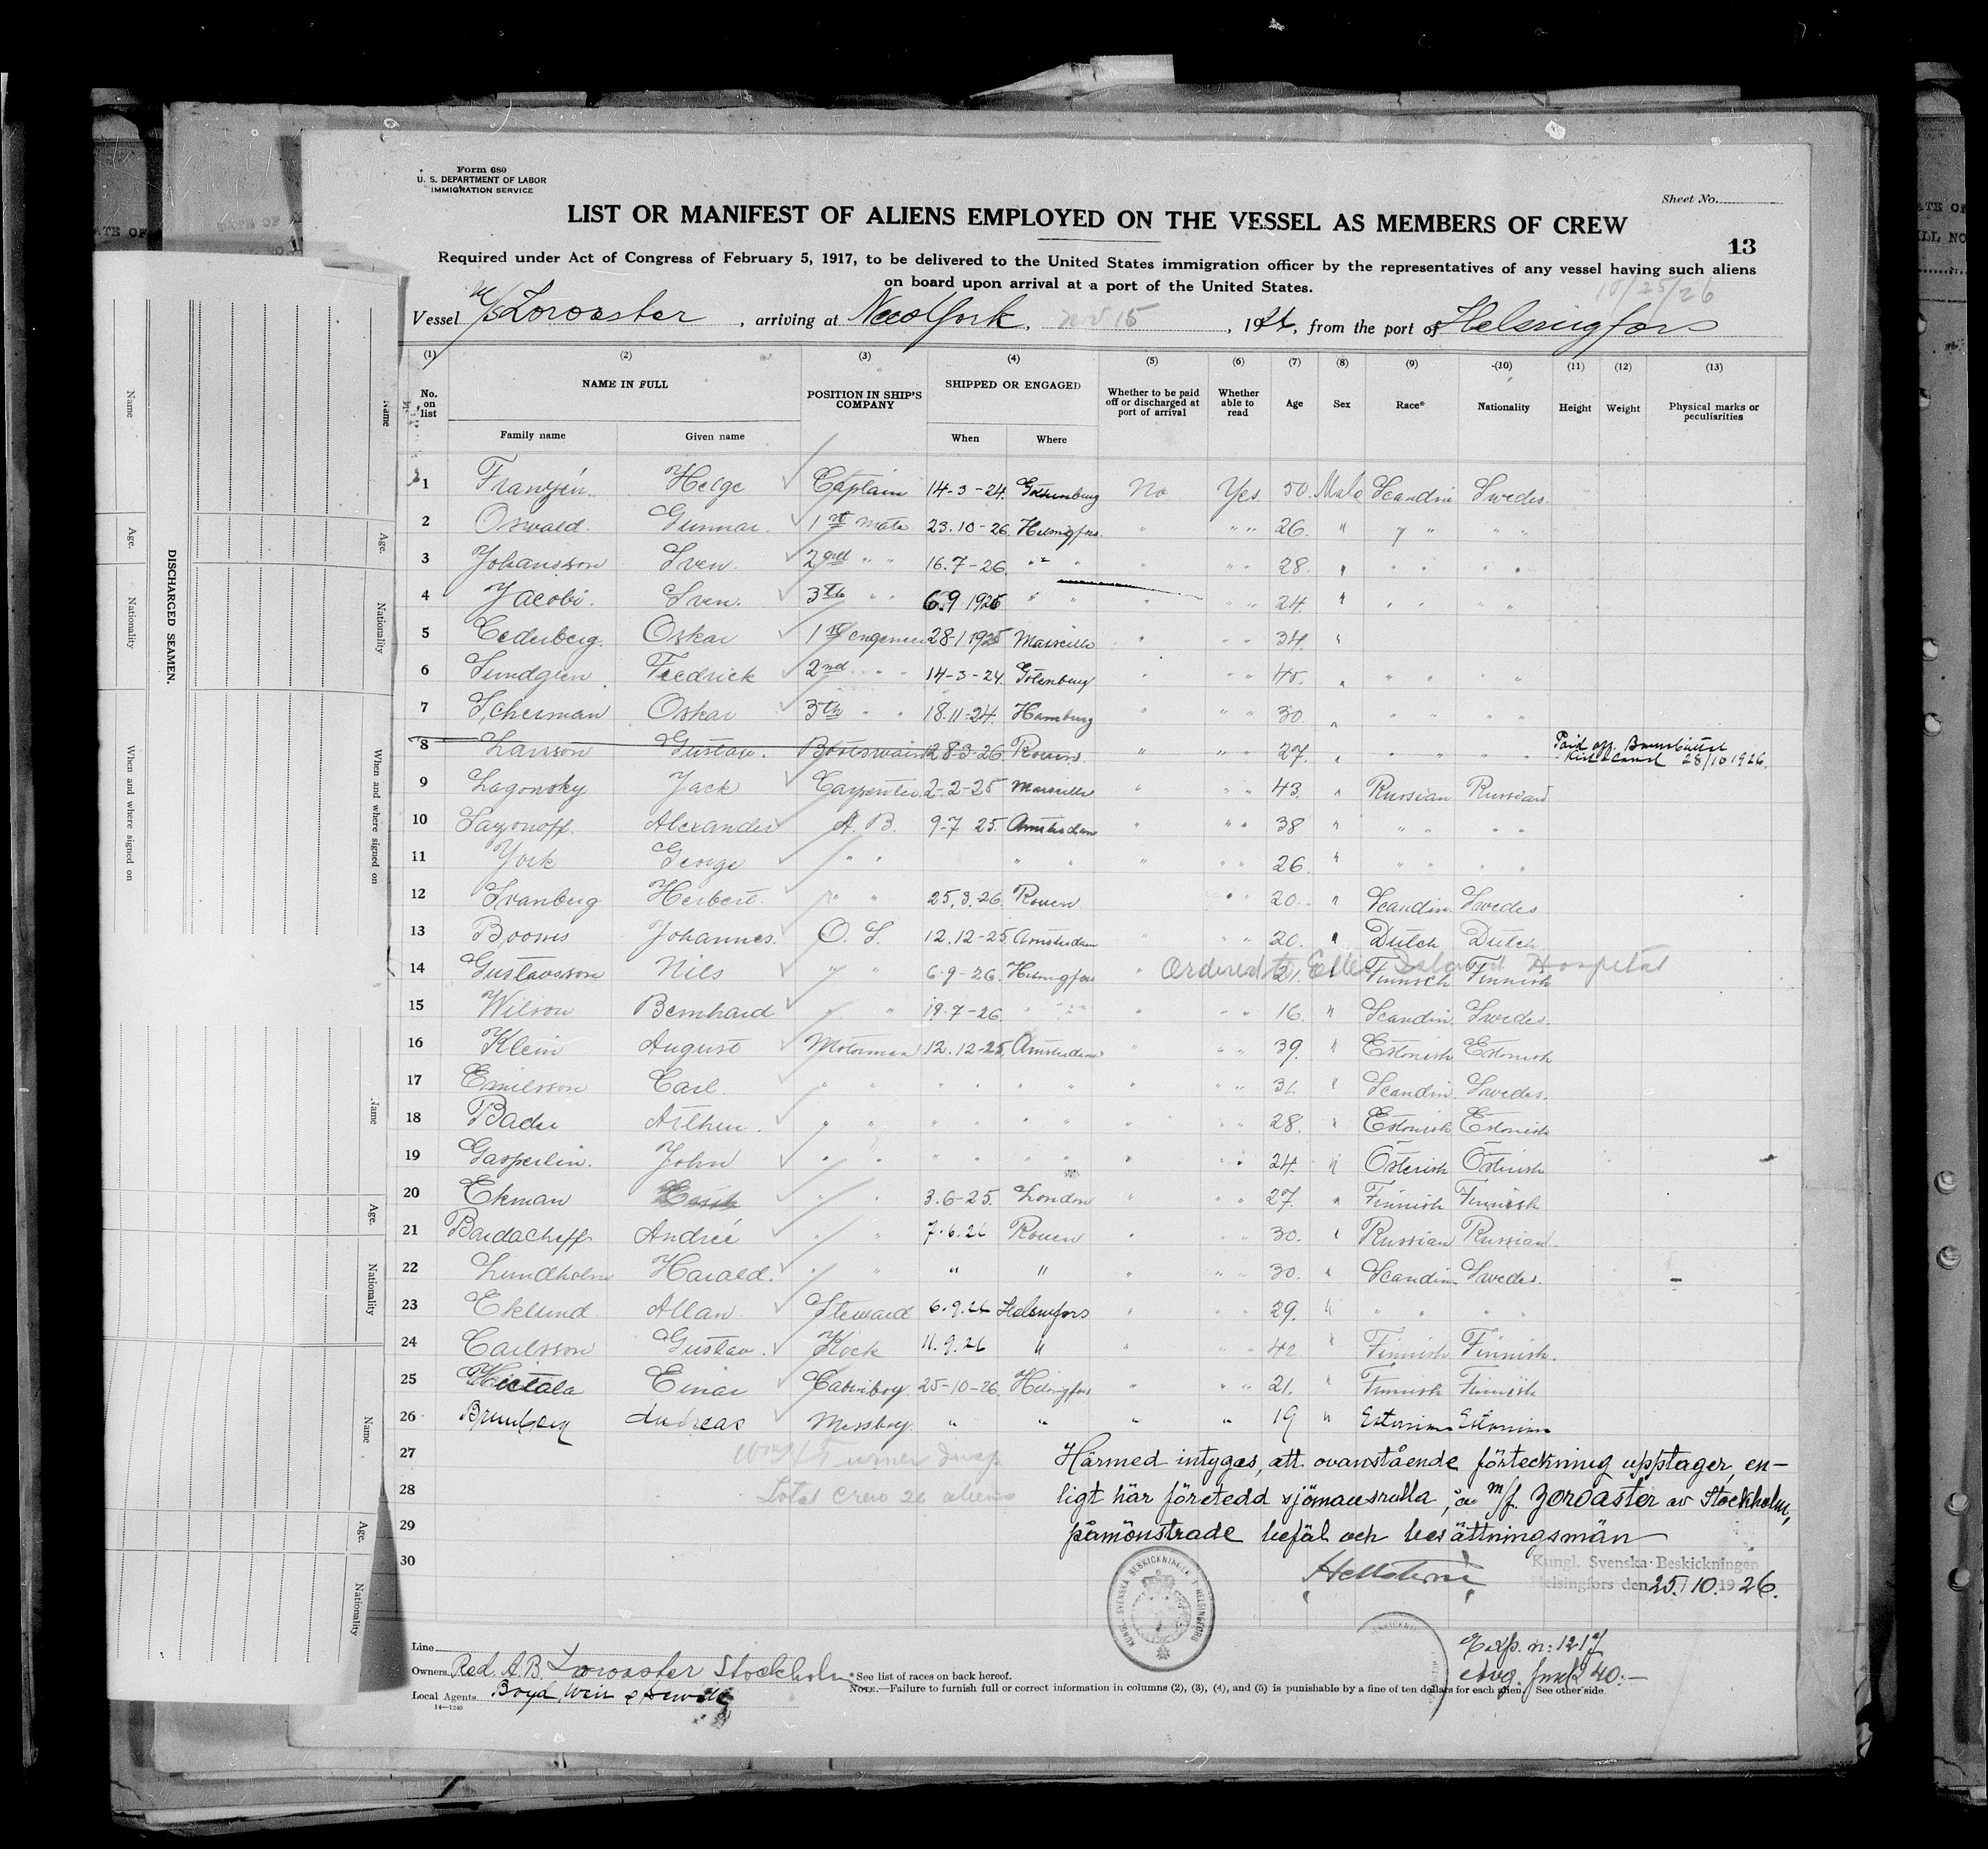 Form 680
U. S. DEPARTMENT OF LABOR
IMMIGRATION SERVICE
Sheet No.
LIST OR MANIFEST OF ALIENS EMPLOYED ON THE VESSEL AS MEMBERS OF CREW
13
Required under Act of Congress of February 5, 1917, to be delivered to the United States immigration officer by the representatives of any vessel having such aliens
on board upon arrival at a port of the United States.
10/25/26
Vessel M/S Zoroaster, arriving at New York. Nov 15, 1926, from the port of Helsingfors
(1) (2) (3) (4) (5) (6) (7) (8) (9) (10) (11) (12) (13)
No. on list NAME IN FULL Family name Given name POSITION IN SHIP'S COMPANY SHIPPED OR ENGAGED When Where Whether to be paid off or discharged at port of arrival Whether able to read Age Sex Race* Nationality Height Weight Physical marks or peculiarities
1 Franzén Helge Captain 14-3-24 Gothenburg No Yes 50. Male Scandin Swedes
2 Oswald. Gunnar. 1st mate 23.10-26 Helsingfors. " " " 26. " " " " "
3 Johansson Sven. 2nd " " 16.7-26. " " " " " 28. " " " " "
4 Jacobi. Sven. 3th " " 6.9 1926 " " " " " 24. " " " " "
5 Cederberg. Oskar 28-1 1925 Marseille " " " 34. "
6 Fredrick 2nd " " 14-3-24. Gotenburg " " " 45. " " " " "
7 Scherman Oskar 3th " " 18.11-24. Hamburg " " " 30. " " " " "
8 Larsson Gustav. Bootswain 28-3-26. Rouen " " " 27. " " " " " Paid off. 28/10 1926.
9 Lagonsky Jack Carpenter 2-2-25 Marseille " " " 43. " Russian Russian
10 Sazonoff. Alexander A. B. 9-7 25. Amsterdam " " " 38 " " " " "
11 York George " " " " " " " 26. " " " " "
12 Svanberg Herbert. " " 25.3.26. Rouen " 20. " Scandin. Swedes
13 Booms Johannes. O. S. 12.12-25. Amsterdam " " " 20. " Dutch Dutch.
14 Gustavsson Nils " " 6.9-26. Helsingfors " 21. Finnish Finnish
Ordered to Ellis Island Hospital
15 Wilson Bernhard " " 19.7-26. " " " " " 16. " Scandin. Swedes.
16 Klein August Motorman 12.12-25. Amsterdam " " " 39. " Estonish Estonish
17 Emilsson Carl " " " " " " " " 31. " Scandin. Swedes.
18 Bader Arthur. " " " " " " " " 28. " Estonish Estonish
19 Gasperlin. John " " " " " " " " 24. " Österish Österish
20 Ekman " " 3.6-25. London " " " 27. " Finnish Finnish
21 Bardacheff André " " 7.6.26 Rouen " " " 30. " Russian Russian.
22 Lundholm Harald. " " " " " " " 30. " Scandin. Swedes.
23 Eklund Allan. Steward 6.9.26 Helsingfors " " " 29. " " " " "
24 Carlsson Gustav. Kock 11.9.26 " " " " 42 " Finnish Finnish.
25 Einar Cabinboy 25-10-26. Helsingfors " " " 21. " Finnish Finnish
26 Andreas Messboy. " " " " 19 " Estonian Estonian
27 Turner Insp
28 Total crew 26 aliens
29
30
Härmed intygas, att ovanstående förteckning upptager, en-
ligt här företedd sjömansrulla, å m/f. Zoroaster av Stockholm,
påmönstrade befäl och besättningsmän
Kungl. Svenska Beskickningen
Helsingfors den 25/10. 1926.
KUNGL. SVENSKA BESKICKNINGEN I HELSINGFORS
Exp. n: 1217
Avg. fmk 40:-
Line
Owners Red. A.B. Zoroaster Stockholm
Local Agents. Boyd, Weir & Sewell
14—1240
*See list of races on back hereof.
NOTE.—Failure to furnish full or correct information in columns (2), (3), (4), and (5) is punishable by a fine of ten dollars for each alien. See other side.
DISCHARGED SEAMEN.
Name
Age.
Nationality
When and where signed on
Name
Age.
Nationality
When and where signed on
Name
Age.
Nationality
Name
Age.
Nationality